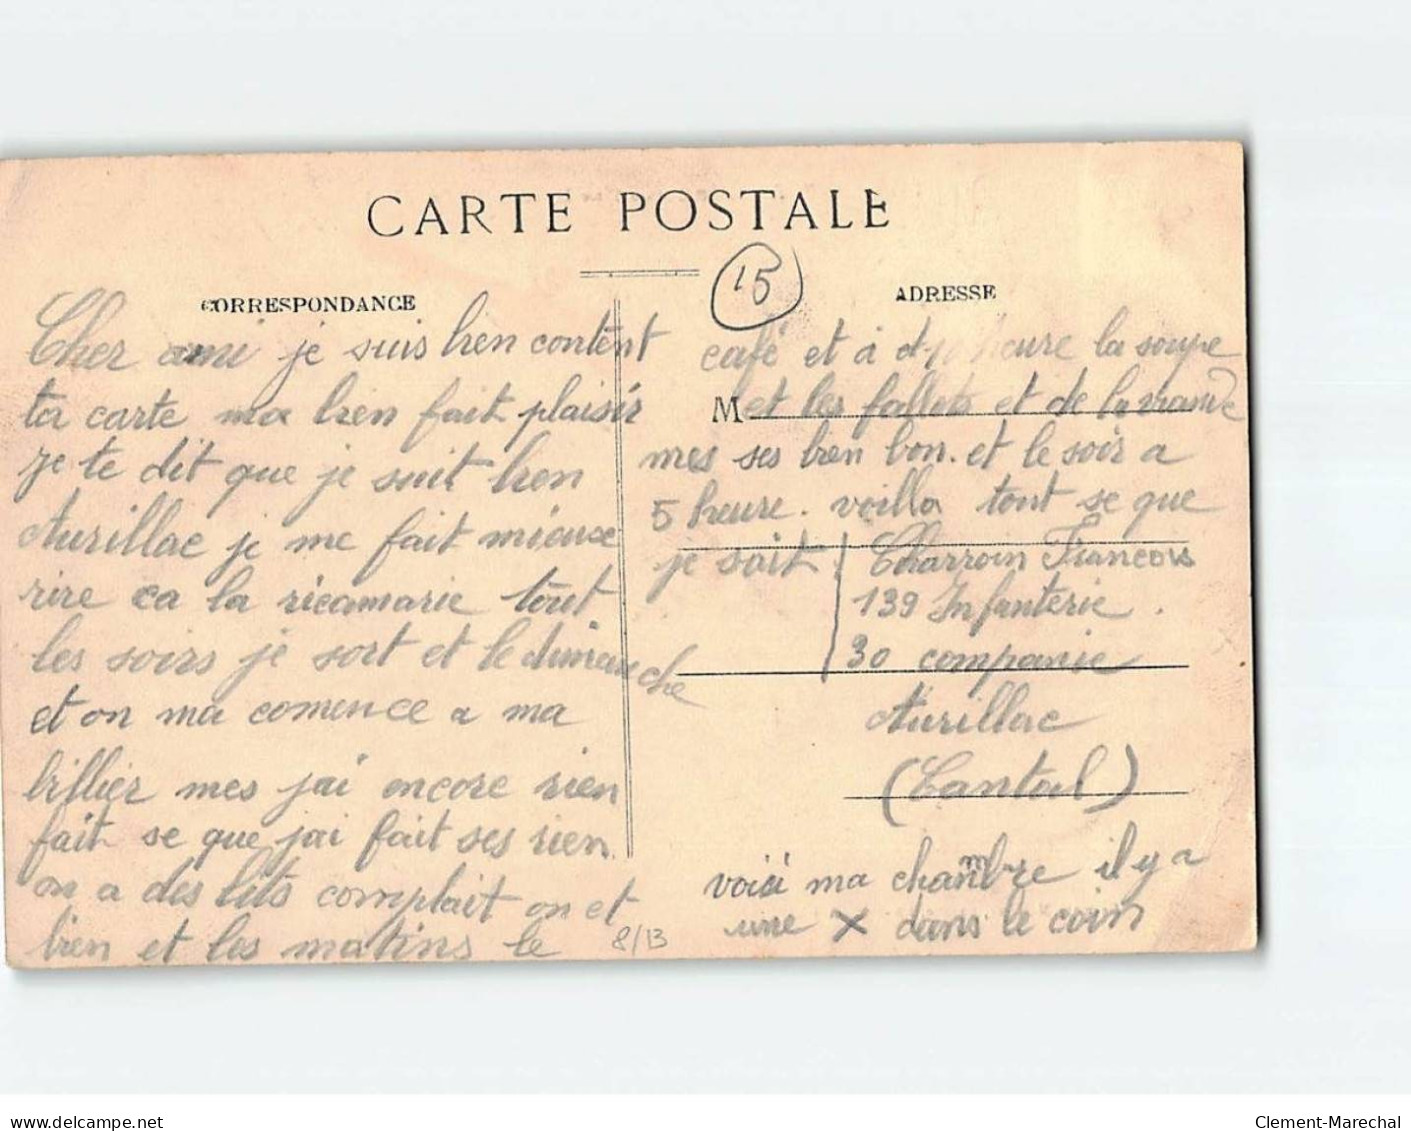 CARTE POSTALE
15
CORRESPONDANCE
Cher ami je suis bien content
ta carte ma bien fait plaisir
je te dit que je suit bien
Aurillac je me fait mieuxe
rire ca la ricamarie tout
les soirs je sort et le dimanche
et on ma comence a ma
billier mes jai encore rien
fait se que jai fait ses rien
on a des lits complait on et
bien et les matins le
8/13
ADRESSE
café et a d heure la soupe
M et les fallots et de la viande
mes ses bien bon. et le soir a
5 heure. voilla tout se que
je sait
Charroin Francois
139 Infanterie.
30 companie
Aurillac
(Cantal)
voici ma chambre il y a
une X dans le coin
www.delcampe.net
Clement-Marechal